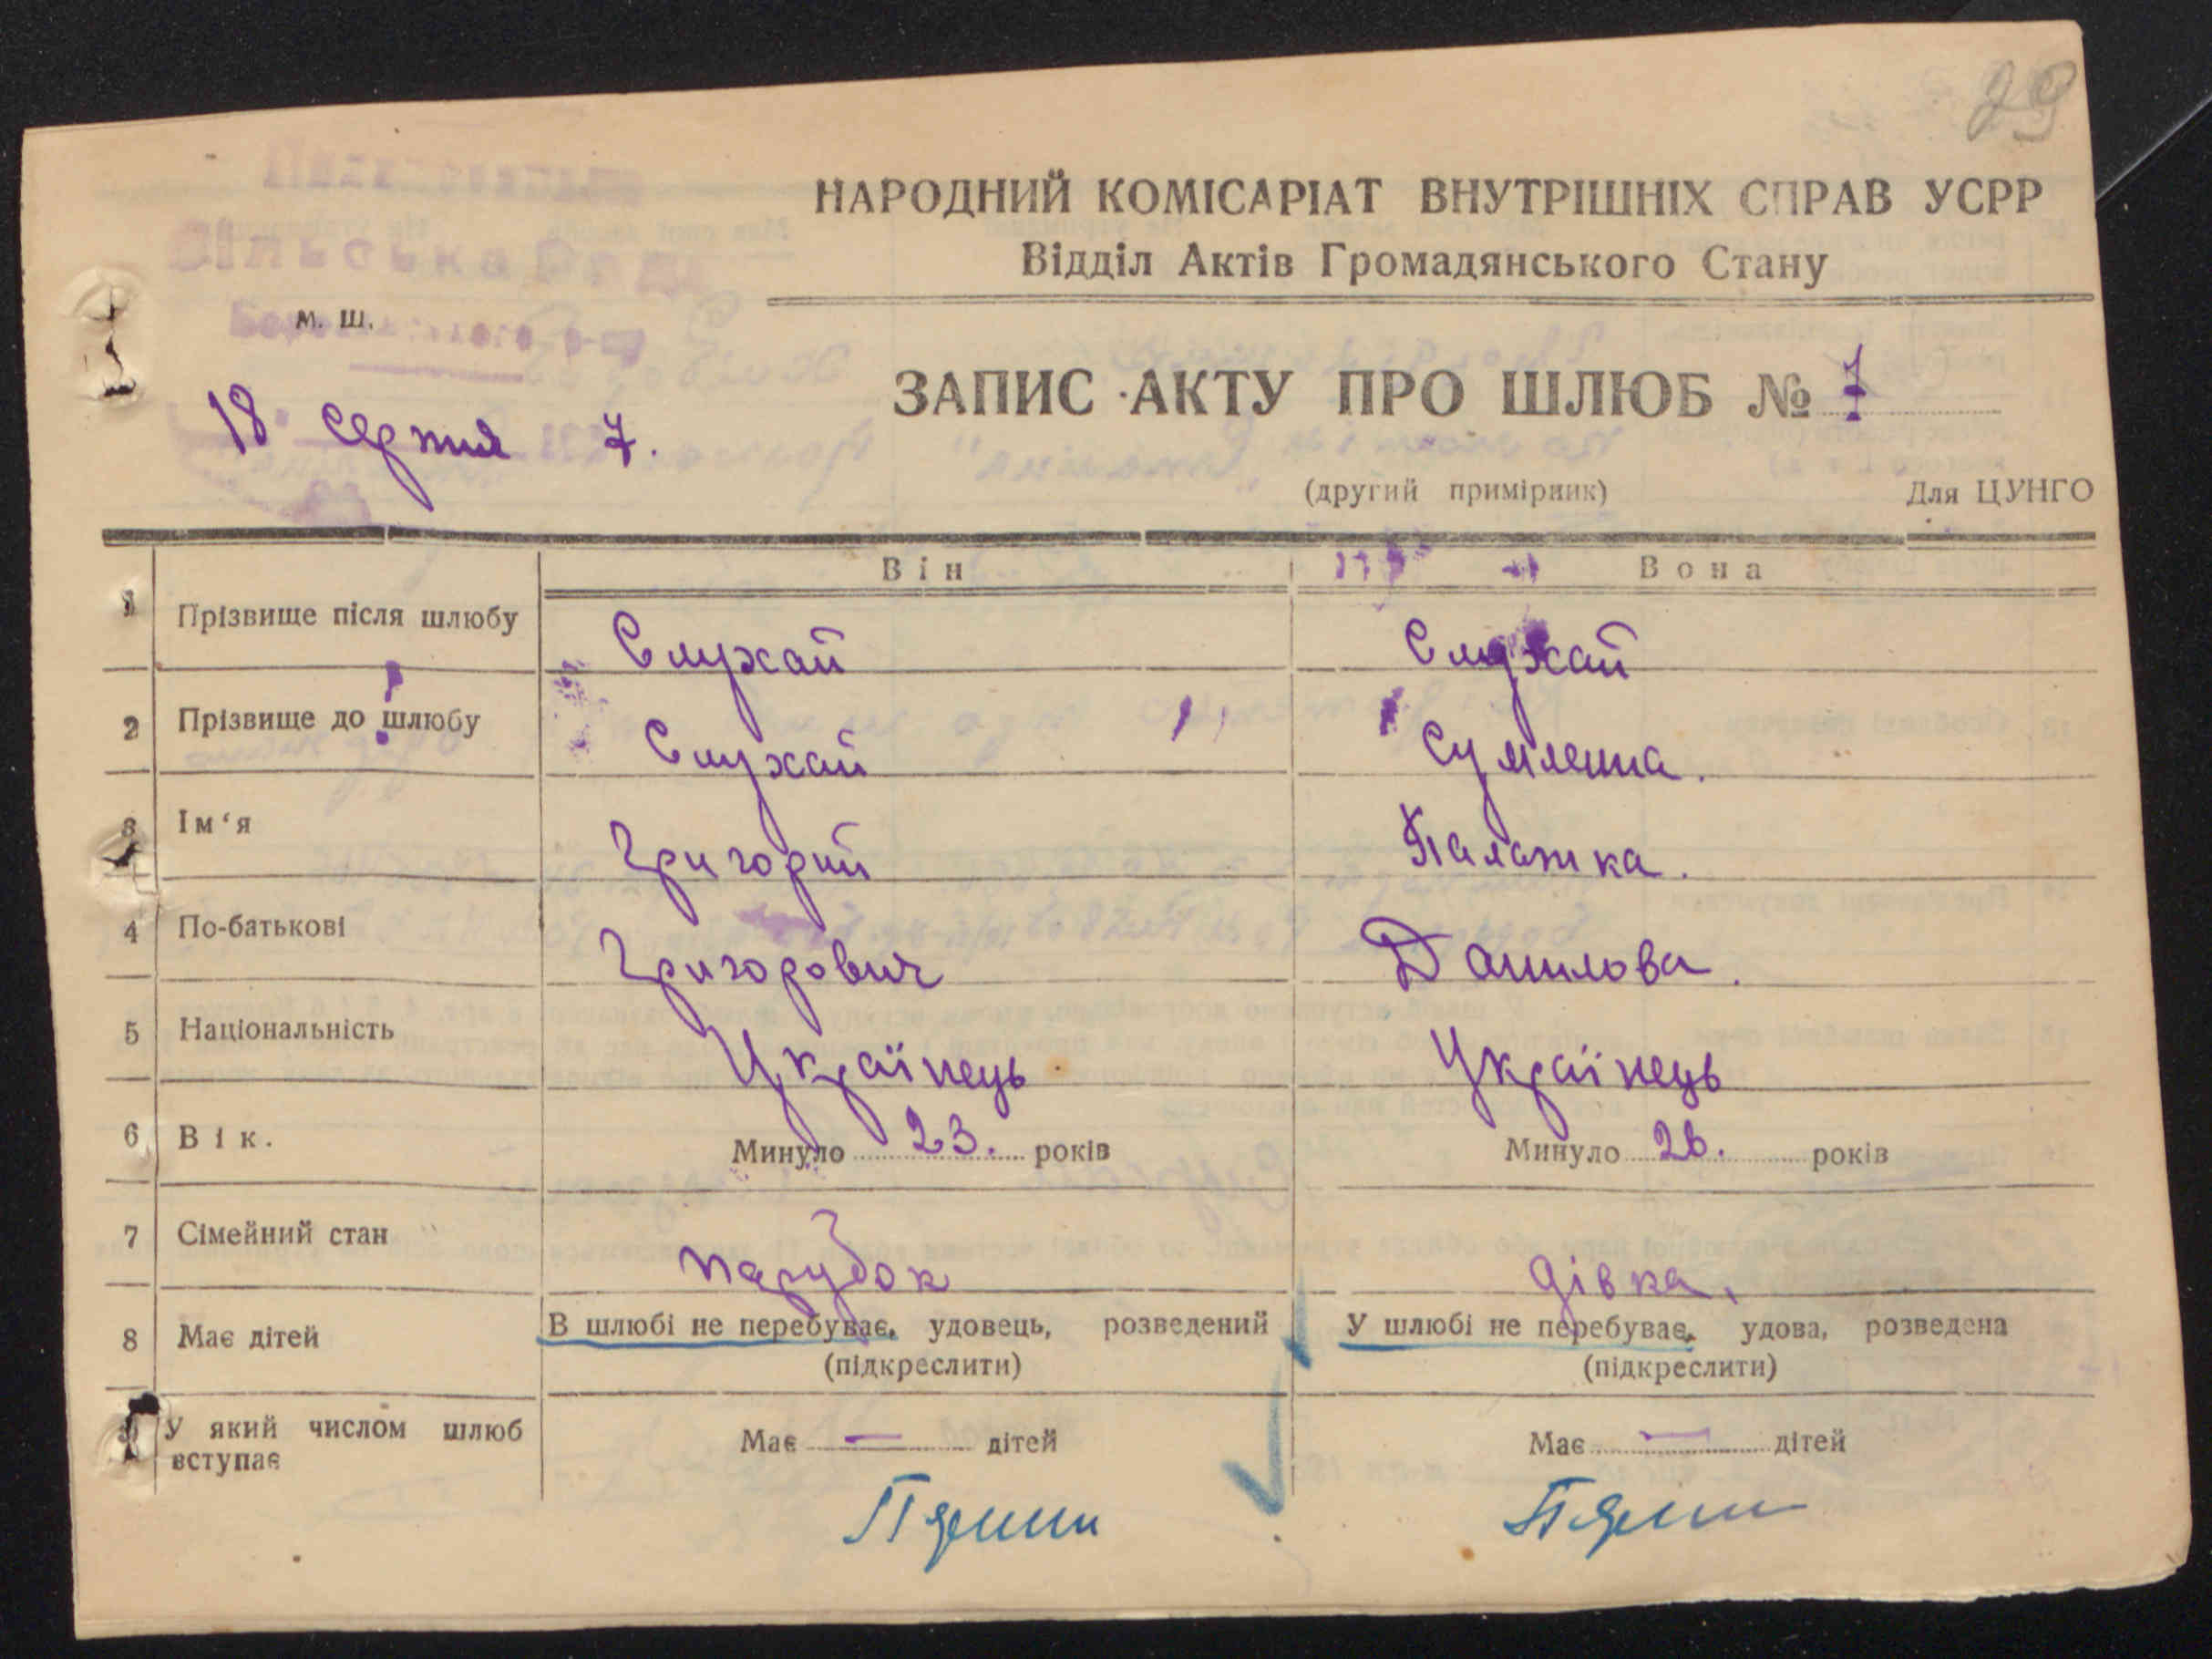 99
НАРОДНИЙ КОМІСАРІАТ ВНУТРІШНІХ СПРАВ УСРР
Відділ Актів Громадянського Стану
Сільська Рада
м. ш.
ЗАПИС АКТУ ПРО ШЛЮБ № 7
18 серпня 7.
(другий примірник) Для ЦУНГО
Він Вона
1 Прізвище після шлюбу Слухай Слухай
2 Прізвище до шлюбу Слухай Сумленна.
3 Ім‘я Григорий Палажка.
4 По-батькові Григорович Данилова.
5 Національність Українець Українець
6 Вік. Минуло 23. років Минуло 26. років
7 Сімейний стан парубок дівка,
8 Має дітей В шлюбі не перебуває, удовець, розведений У шлюбі не перебуває, удова, розведена
(підкреслити) (підкреслити)
9 У який числом шлюб вступає Має — дітей Має — дітей